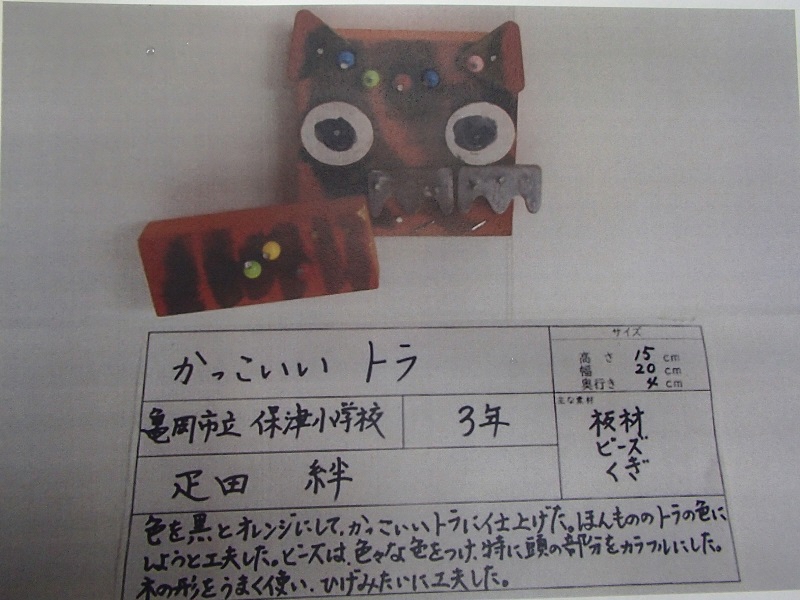 かっこいい トラ
サイズ
高さ 15 cm
幅 20 cm
奥行き 4 cm
亀岡市立 保津小学校
3年
主な素材
板材
ビーズ
くぎ
疋田 絆
色を黒とオレンジにして、かっこいいトラに仕上げた。ほんもののトラの色に
しようと工夫した。ビーズは、色々な色をつけ、特に頭の部分をカラフルにした。
木の形をうまく使い、ひげみたいに工夫した。